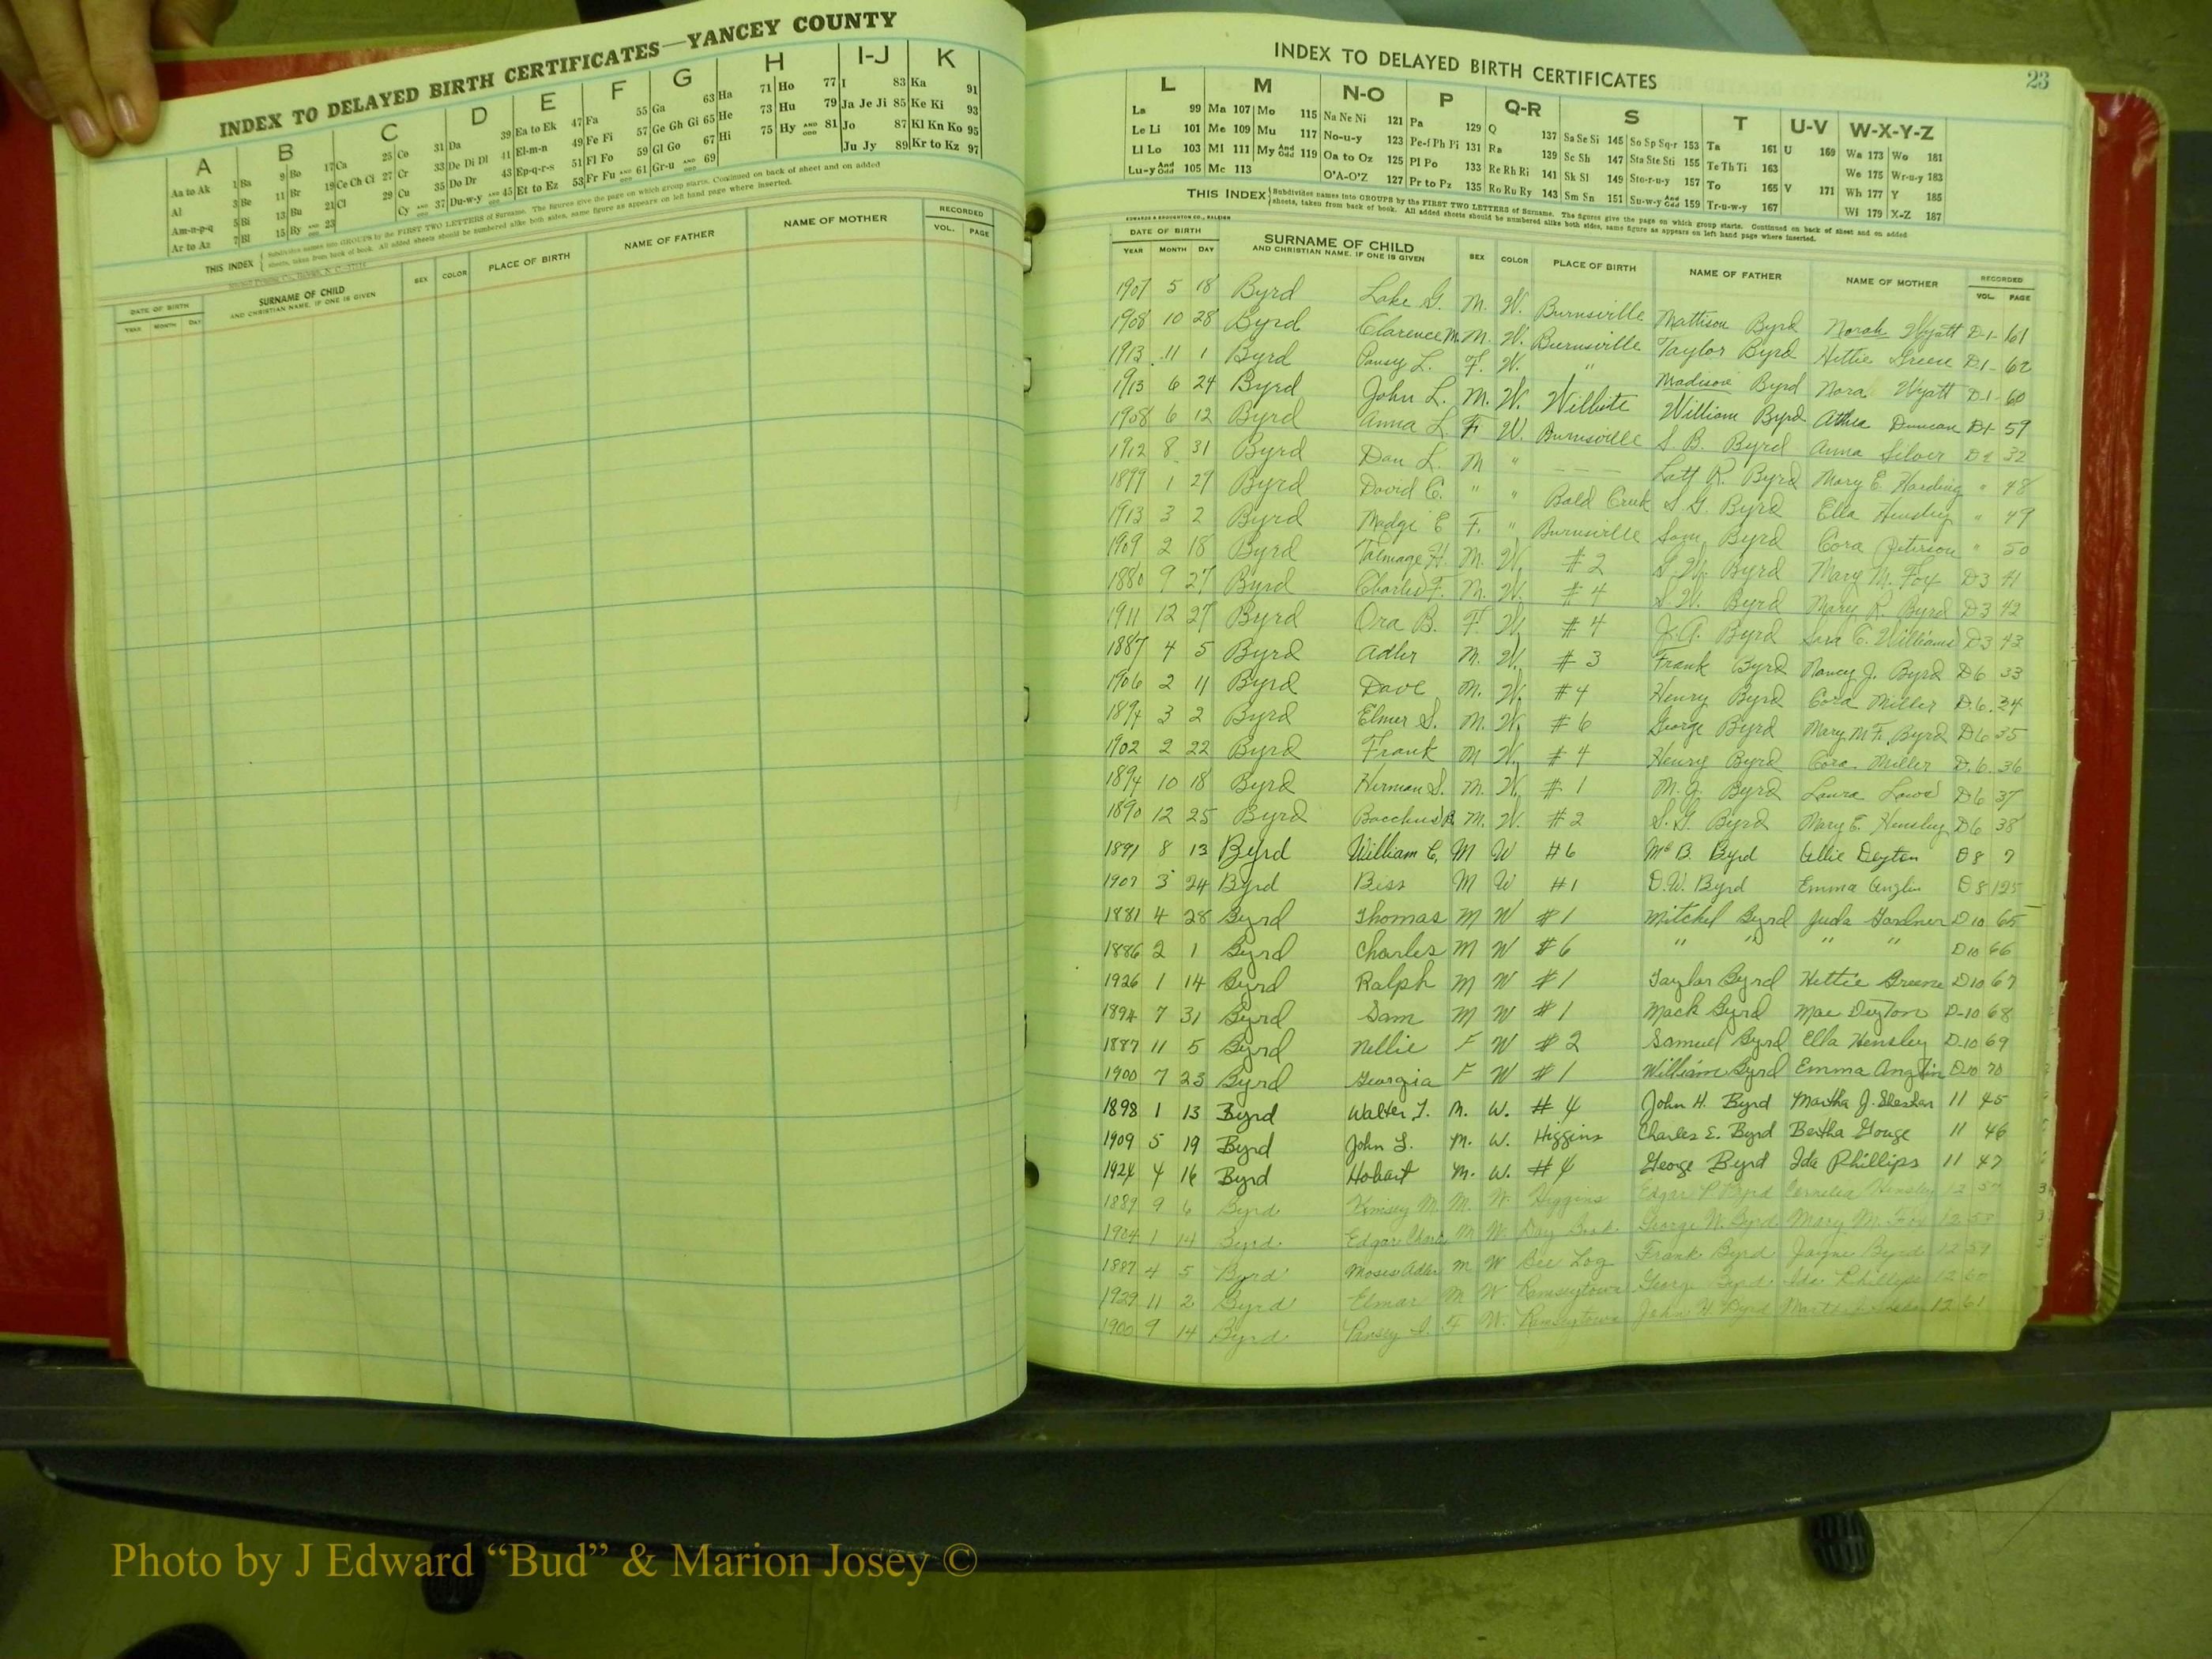 INDEX TO DELAYED BIRTH CERTIFICATES—YANCEY COUNTY
A B C D E F G H I-J K
Aa to Ak 1 Ba 9 Bo 17 Ca 25 Co 31 Da 39 Ea to Ek 47 Fa 55 Ga 63 Ha 71 Ho 77 I 83 Ka 91
Al 3 Be 11 Br 19 Ce Ch Ci 27 Cr 33 De Di Dl 41 El-m-n 49 Fe Fi 57 Ge Gh Gi 65 He 73 Hu 79 Ja Je Ji 85 Ke Ki 93
Am-n-p-q 5 Bi 13 Bu 21 Cl 29 Cu 35 Do Dr 43 Ep-q-r-s 51 Fl Fo 59 Gl Go 67 Hi 75 Hy AND ODD 81 Jo 87 Kl Kn Ko 95
Ar to Az 7 Bl 15 By AND ODD 23 Cy AND ODD 37 Du-w-y AND ODD 45 Et to Ez 53 Fr Fu AND ODD 61 Gr-u AND ODD 69 Ju Jy 89 Kr to Kz 97
THIS INDEX Subdivides names into GROUPS by the FIRST TWO LETTERS of Surname. The figures give the page on which group starts. Continued on back of sheet and on added
sheets, taken from back of book. All added sheets should be numbered alike both sides, same figure as appears on left hand page where inserted.
DATE OF BIRTH SURNAME OF CHILD SEX COLOR PLACE OF BIRTH NAME OF FATHER NAME OF MOTHER RECORDED
YEAR MONTH DAY AND CHRISTIAN NAME, IF ONE IS GIVEN VOL. PAGE
INDEX TO DELAYED BIRTH CERTIFICATES
23
L M N-O P Q-R S T U-V W-X-Y-Z
La 99 Ma 107 Mo 115 Na Ne Ni 121 Pa 129 Q 137 Sa Se Si 145 So Sp Sq-r 153 Ta 161 U 169 Wa 173 Wo 181
Le Li 101 Me 109 Mu 117 No-u-y 123 Pe-f Ph Pi 131 Ra 139 Sc Sh 147 Sta Ste Sti 155 Te Th Ti 163 We 175 Wr-u-y 183
Ll Lo 103 Mi 111 My And Odd 119 Oa to Oz 125 Pl Po 133 Re Rh Ri 141 Sk Sl 149 Sto-r-u-y 157 To 165 V 171 Wh 177 Y 185
Lu-y And Odd 105 Mc 113 O'A-O'Z 127 Pr to Pz 135 Ro Ru Ry 143 Sm Sn 151 Su-w-y And Odd 159 Tr-u-w-y 167 Wi 179 X-Z 187
THIS INDEX Subdivides names into GROUPS by the FIRST TWO LETTERS of Surname. The figures give the page on which group starts. Continued on back of sheet and on added
sheets, taken from back of book. All added sheets should be numbered alike both sides, same figure as appears on left hand page where inserted.
EDWARDS & BROUGHTON CO., RALEIGH
DATE OF BIRTH SURNAME OF CHILD SEX COLOR PLACE OF BIRTH NAME OF FATHER NAME OF MOTHER RECORDED
YEAR MONTH DAY AND CHRISTIAN NAME, IF ONE IS GIVEN VOL. PAGE
1907 5 18 Byrd Lake G. M. W. Burnsville Mattison Byrd Norah Wyatt D-1- 61
1908 10 28 Byrd Clarence M. M. W. Burnsville Taylor Byrd Hettie Greene D.1- 62
1913 11 1 Byrd Pansy L. F. W. " Madison Byrd Nora Wyatt D-1- 60
1913 6 24 Byrd John L. M. W. Wilhite William Byrd Athea Duncan D1- 59
1908 6 12 Byrd Anna L F. W. Burnsville S. B. Byrd Anna Silver D 2 32
1912 8 31 Byrd Dan L. M " — — — Latt R. Byrd Mary E. Harding " 48
1899 1 27 Byrd David C. " " Bald Creek S. G. Byrd Ella Hensley " 49
1913 3 2 Byrd Madge E F. " Burnsville Sam Byrd Cora Peterson " 50
1909 2 18 Byrd Talmage H. M. W. #2 G. W. Byrd Mary M. Fox D3 41
1880 9 27 Byrd Charles F. M. W. #4 S. W. Byrd Mary R. Byrd D3 42
1911 12 27 Byrd Ora B. F. W. #4 J. A. Byrd Sara C. Williams D3 43
1887 4 5 Byrd Adler M. W. #3 Frank Byrd Nancy J. Byrd D6 33
1906 2 11 Byrd Dave M. W. #4 Henry Byrd Cora Miller D.6. 34
1894 3 2 Byrd Elmer S. M. W. #6 George Byrd Mary M. F. Byrd D6 35
1902 2 22 Byrd Frank M W. #4 Henry Byrd Cora Miller D.6. 36
1894 10 18 Byrd Herman S. M. W. #1 M. G. Byrd Laura Laws D6 37
1890 12 25 Byrd Bacchus R. M. W. #2 S. G. Byrd Mary E. Hensley D6 38
1891 8 13 Byrd William C. M W #6 Mc B. Byrd Ellie Deyton D8 7
1907 3 24 Byrd Biss M W #1 D. W. Byrd Emma Anglin D8 125
1881 4 28 Byrd Thomas M W #1 Mitchel Byrd Juda Gardner D10 65
1886 2 1 Byrd Charles M W #6 " " " " D10 66
1926 1 14 Byrd Ralph M W #1 Taylor Byrd Hettie Greene D10 67
1894 7 31 Byrd Sam M W #1 Mack Byrd Mae Deyton D-10 68
1887 11 5 Byrd Nellie F W #2 Samuel Byrd Ella Hensley D-10 69
1900 7 23 Byrd Georgia F W #1 William Byrd Emma Anglin D-10 70
1898 1 13 Byrd Walter T. M. W. #4 John H. Byrd Martha J. 11 45
1909 5 19 Byrd John L. M. W. Higgins Charles E. Byrd Bertha Gouge 11 46
1924 4 16 Byrd Hobart M. W. #4 George Byrd Ida Phillips 11 47
1889 9 6 Byrd Kimsey M M. W. Higgins Edgar P. Byrd Cornelia Hensley 12
1904 1 14 Byrd Edgar M W Day Book George W. Byrd Mary M. Fox 12 58
1887 4 5 Byrd Moses Adler M W Bee Log Frank Byrd Jayne Byrd 12 59
1929 11 2 Byrd Elmar M W Ramseytown George Byrd Ida Phillips 12 60
1900 9 14 Byrd Pansey F W. Ramseytown John H Byrd 12 61
Photo by J Edward “Bud” & Marion Josey ©